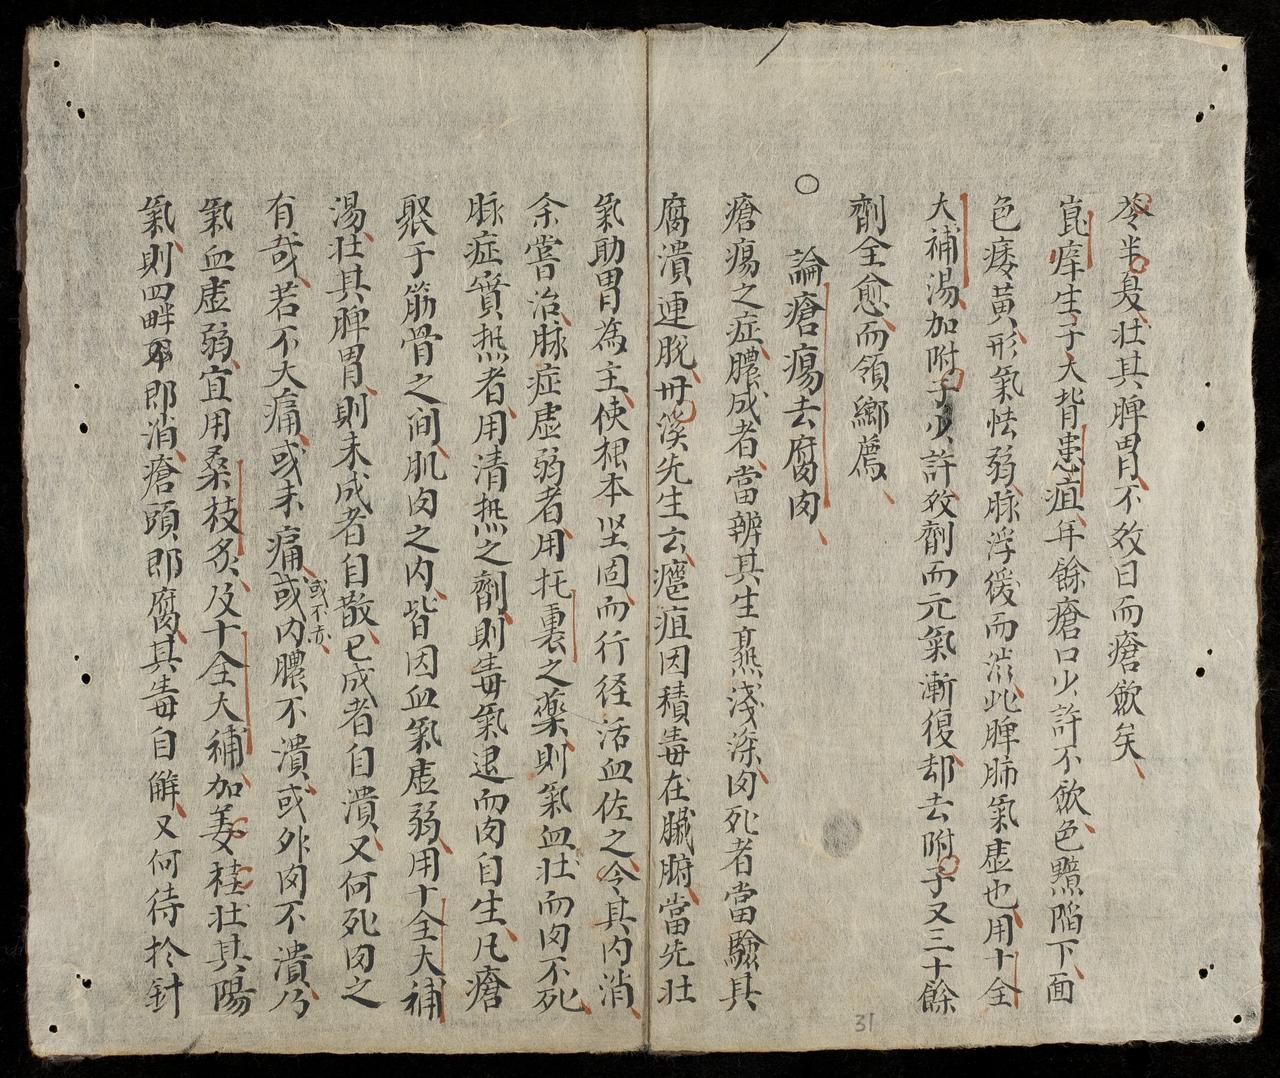 苓半夏壮其脾胃不效日而瘡歛矣
庠生子大背患疽年餘瘡口少許不歛色黯陷下面
色痿黄形氣怯弱脉浮緩而濇此脾肺氣虚也用十全
大補湯加附子少許效劑而元氣漸復却去附子又三十餘
劑全愈而領鄉薦
○ 論瘡瘍去腐肉
瘡瘍之症膿成者當辨其生熟淺深肉死者當驗其
腐潰連脫丹溪先生云癰疽因積毒在臟腑當先壮
氣助胃為主使根本坚固而行径活血佐之令其内消
余嘗治脉症虚弱者用托裏之藥則氣血壮而肉不死
脉症實热者用清热之劑則毒氣退而肉自生凡瘡
聚于筋骨之间肌肉之内皆因血氣虚弱用十全大補
湯壮其脾胃則未成者自散已成者自潰又何死肉之
有哉若不大痛或未痛或内膿不潰或外肉不潰乃
或不赤
氣血虚弱宜用桑枝炙及十全大補加姜桂壮其陽
氣則四畔即消瘡頭即腐其毒自解又何待於針
31